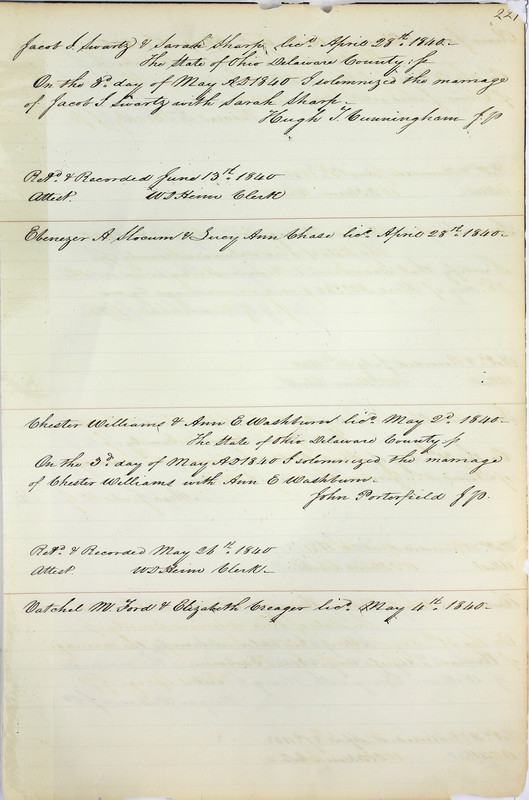 221
Jacob S. Swartz & Sarah Sharp licd. April 28th. 1840.-
The State of Ohio Delaware County. ss
On the 3d. day of May AD 1840 I solemnized the marriage
of Jacob S. Swartz with Sarah Sharp.-
Hugh T. Cunningham J.P.
Retd. & Recorded June 13th. 1840
Attest. W D Heim Clerk
Ebenezer A. Slocum & Lucy Ann Chase licd. April 28th. 1840.-
Chester Williams & Ann E. Washburn licd. May 2d. 1840.-
The State of Ohio Delaware County. ss
On the 3d. day of May AD 1840 I solemnized the marriage
of Chester Williams with Ann E Washburn.-
John Porterfield J.P.
Retd. & Recorded May 26th. 1840
Attest. W D Heim Clerk.-
Vatchel M. Ford & Elizabeth Creager licd. May 4th. 1840.-